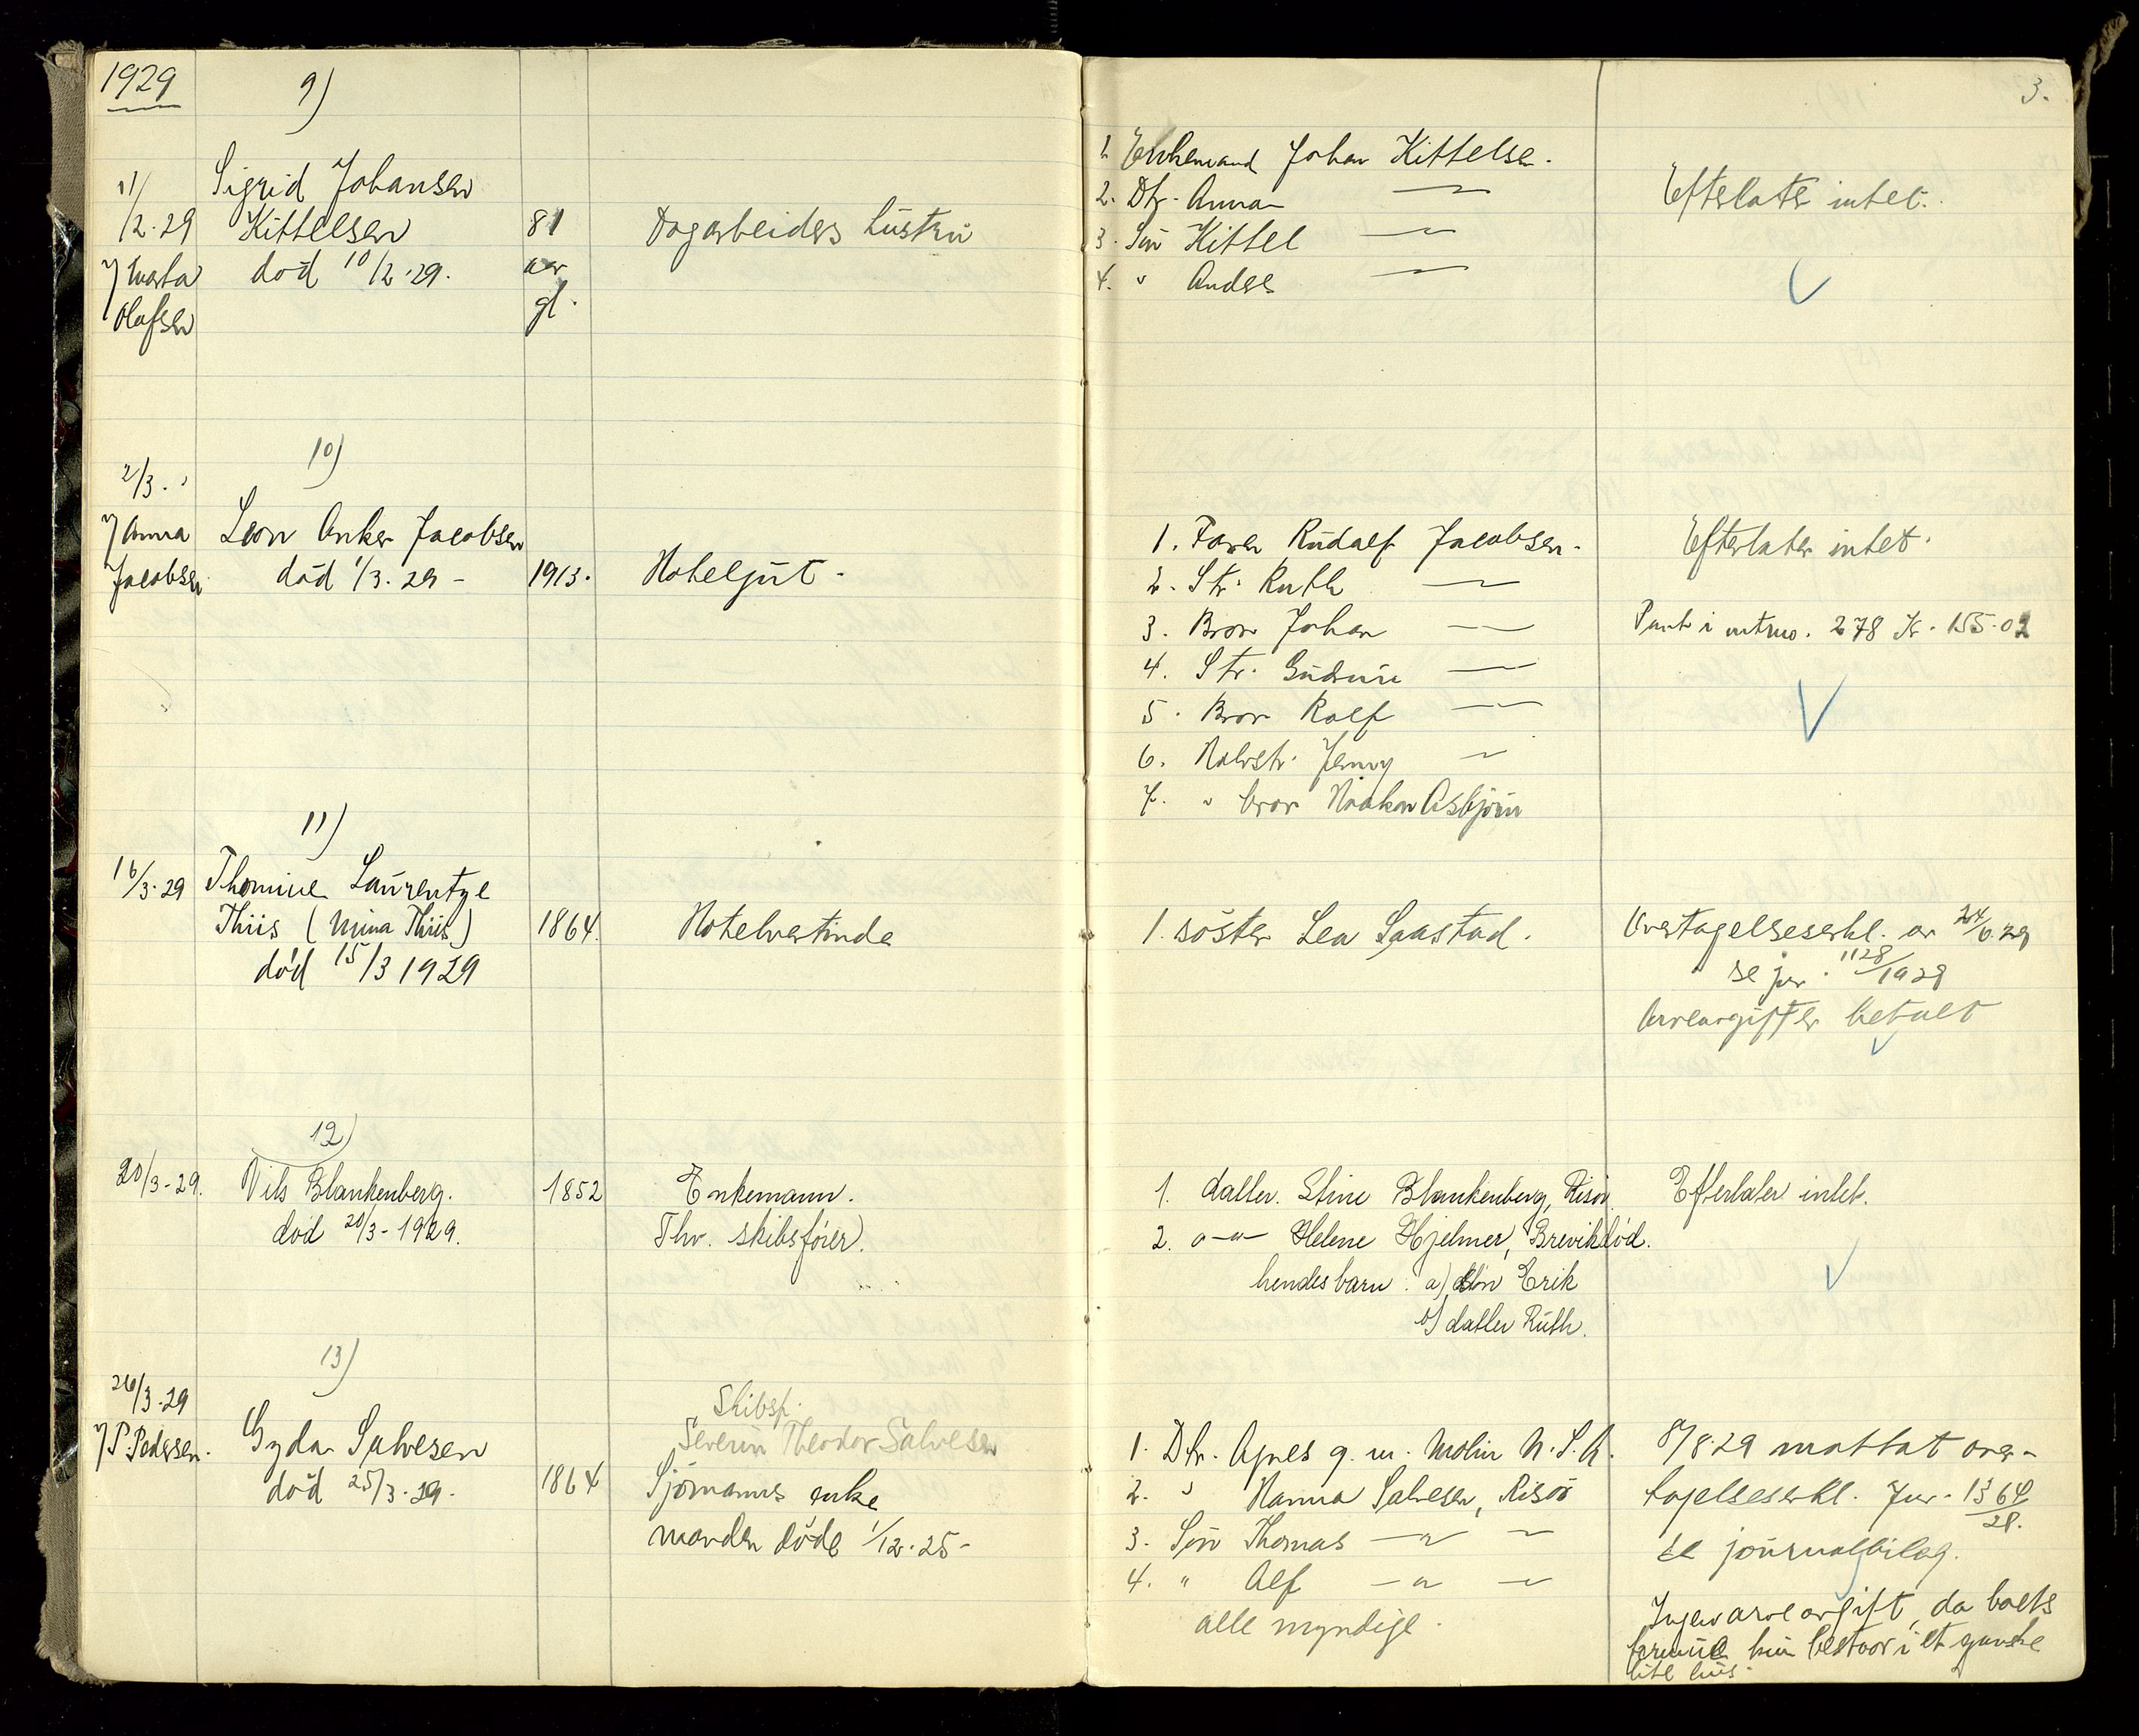 1929
9)
3.
11/12.29
Sigrid Johansen
Kittelsen
død 10/12.29.
v/ Marta
Olafsen
81
aar
gl.
Dagarbeiders hustru
1. Enkemand Johan Kittelsen.
2. Dtr. Anna —
3. Sön Kittel —
4. " Anders —
Efterlater intet.
10)
2/3. "
v/ Anna
Jacobsen
Leon Anker Jacobsen
död 1/3.29 -
1913.
Hotelgut -
1. Faren Rudolf Jacobsen.
2. Str. Ruth —
3. Bror Johan —
4. Str. Gudrun —
5. Bror Rolf —
6. Halvstr. Jenny —
7. " bror Haakon Asbjörn
Efterlater intet.
278 Kr. 155.02
11)
16/3.29
Thomine Laurentze
Thiis (Mina Thiis)
död 15/3 1929
1864.
Hotelvertinde
1. söster Lea Saastad.
Overtagelseserkl. av 24/6.29
se jnr. 1128/1929
Arveavgiften betalt
12)
20/3-29.
Nils Blankenberg.
död 20/3-1929.
1852
Enkemann.
Fhv. skibsförer.
1. datter. Stine Blankenberg, Risör.
2. —"— Helene Hjelmer, Brevik död.
hendes barn: a) sön Erik
b) datter Ruth.
Efterlater intet.
13)
26/3.29
v/ P. Pedersen.
Gyda Salvesen
död 25/3.29.
1864
Skibsf.
Severin Theodor Salvesen
Sjömanns enke
manden döde 1/12.25-
1. Dtr. Agnes g. m. Molin U.S.A.
2. " Hanna Salvesen, Risör
3. Sön Thomas —"— —
4. " Alf —"— —
alle myndige.
8/8.29 mottat over-
tagelseserkl. Jnr. 1364/29.
se journalbilag.
Ingen arveavgift, da boets
formue kun bestaar i et ganske
lite hus.